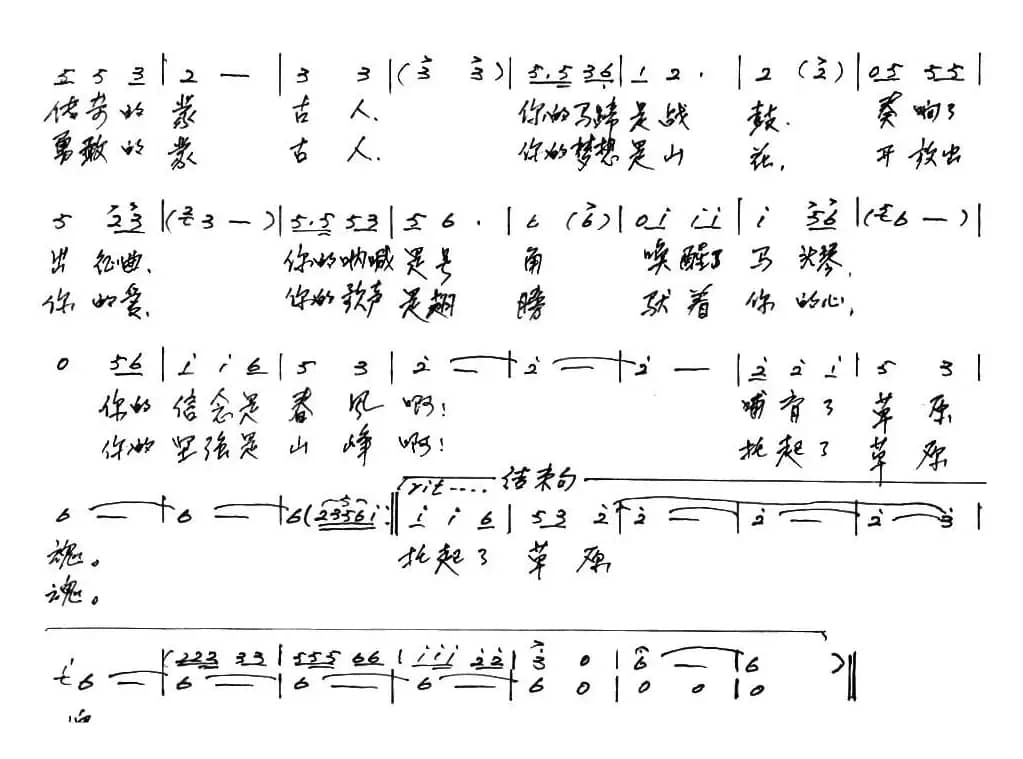 5 5 3 | 2 — | 3 3 | (3 3) | 5.5 36 | 1 2. | 2 (2) | 05 55 |
传奇的蒙 古 人. 你的马蹄是战 鼓. 奏响了
勇敢的蒙 古 人. 你的梦想是山 花, 开放出
5 23 | (3 3 —) | 5.5 53 | 5 6. | 6 (6) | 0i ii | i 56 | (6 —) |
出 征曲, 你的呐喊是号 角 唤醒了马 头琴,
你 的爱, 你的歌声是翅 膀 驮着你 的心,
0 56 | i i 6 | 5 3 | 2 — | 2 — | 2 — | 2 2 i | 5 3 |
你的信念是春 风 啊! 哺育了草 原
你的坚强是山 峰 啊! 托起了草 原
rit.... 结束句
6 — | 6 — | 6 (2356i :‖ i i 6 | 53 2 | 2 — | 2 — | 2 3 |
魂。 托起了草 原
魂。
(223 33 | 555 66 | iii 22 | 3 0 | 6 — | 6 )‖
6 — | 6 — | 6 — | 6 — | 6 0 | 0 0 | 0